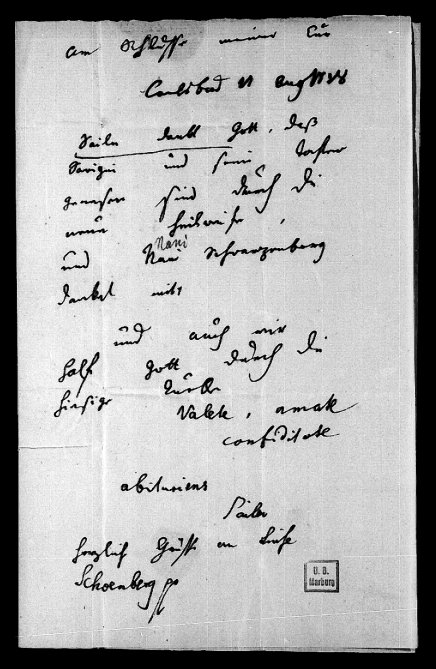 am Schlusse meiner Cur
Carlsbad 11 Aug
Sailer dankt Gott, daß
Savigni und seine Tochter
genesen sind durch die
neue Heilweise,
und Nani Schwarzenberg
Nani
danket mit
und auch mir
half Gott durch die
hiesige Quelle
Valete, amate
confidite
abituriens
Sailer
herzlich Grüße an
Schoenberg
U. B.
Marburg